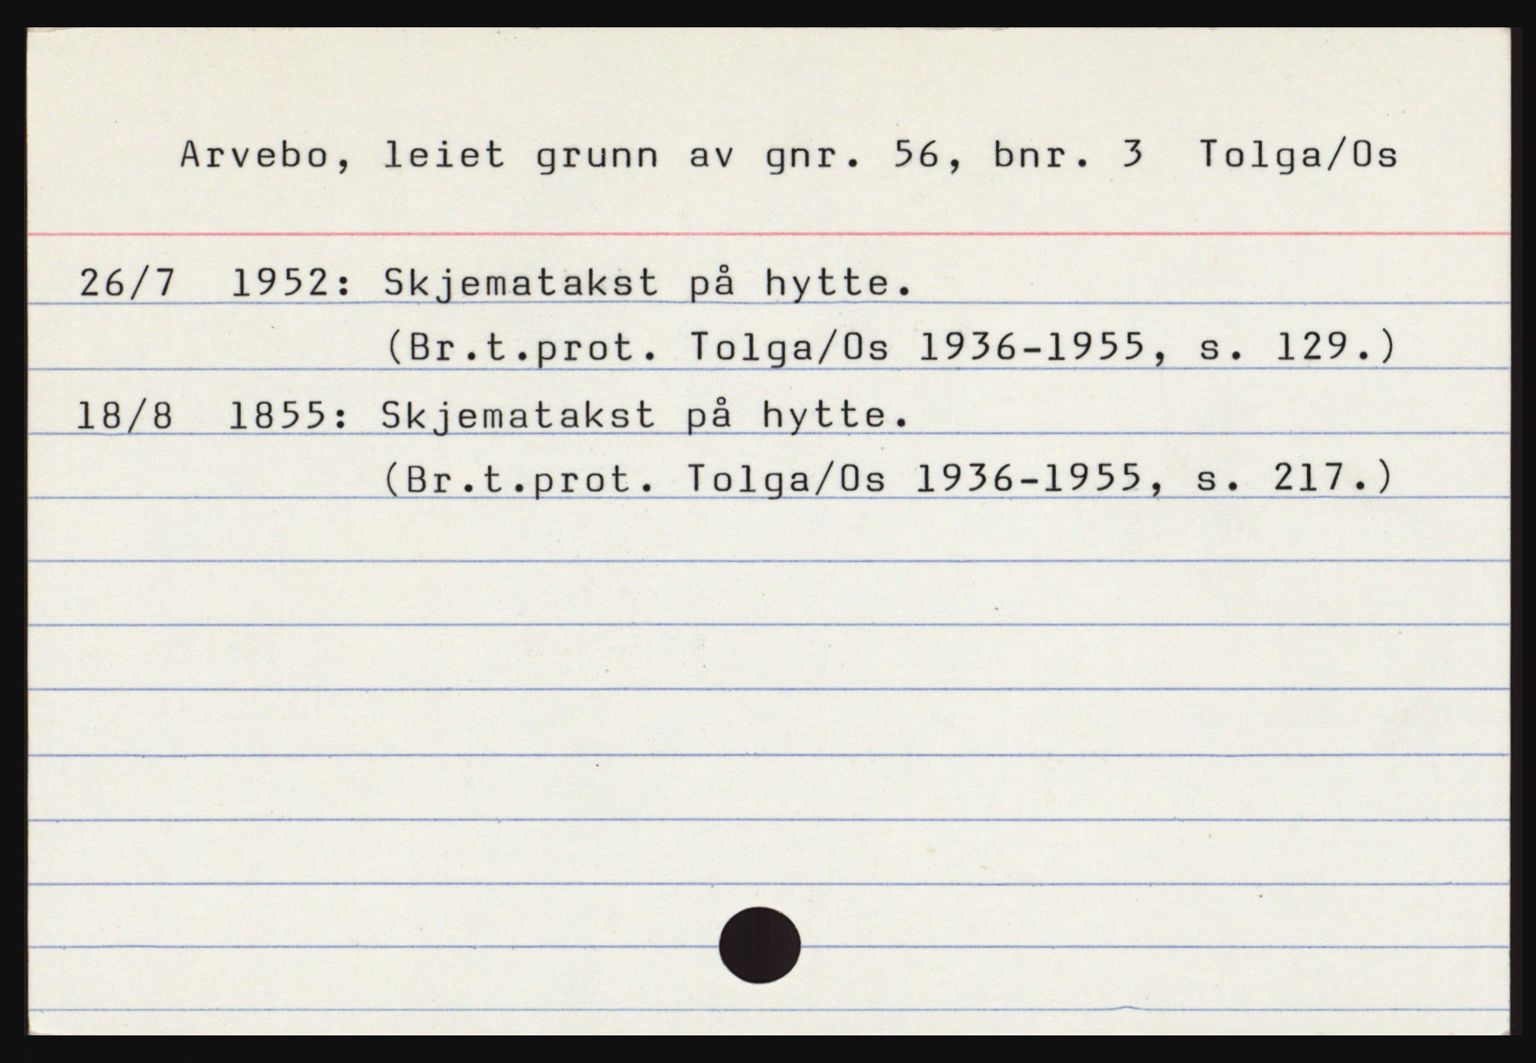 Arvebo, leiet grunn av gnr. 56, bnr. 3  Tolga/Os
26/7  1952: Skjematakst på hytte.
(Br.t.prot. Tolga/Os 1936-1955, s. 129.)
18/8  1855: Skjematakst på hytte.
(Br.t.prot. Tolga/Os 1936-1955, s. 217.)